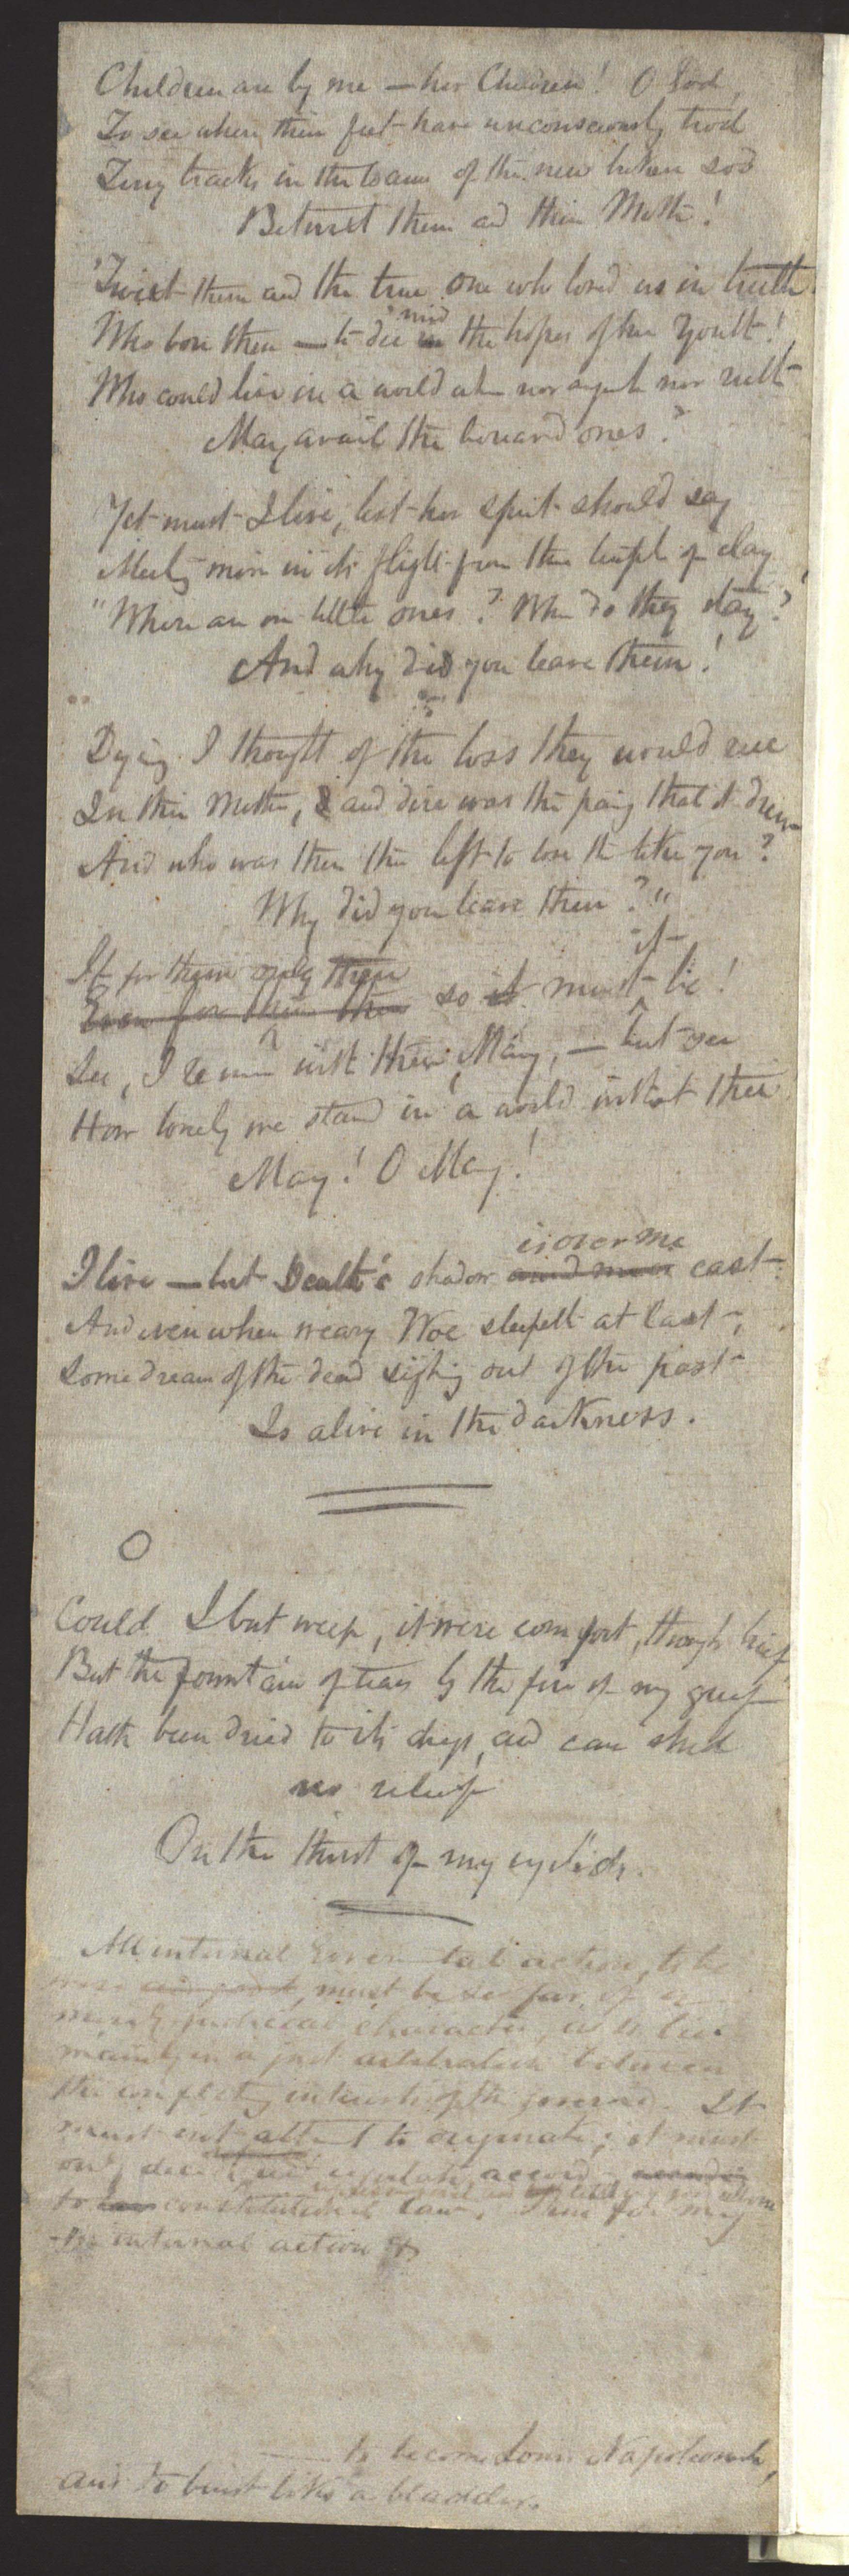 Children are by me — her Children! O God,
To see when their feet have unconsciously trod
Tiny tracks in the loam of the new broken sod
Betwixt them and their Mother!
'Twixt them and the true one who loved us in truth
Who bore them — to die in mid the hopes of her Youth!
Who could live in a world when nor anguish nor ruth
May avail the bereav'd ones?
Yet must I live, lest her spirit should say
Meeting mine in its flight from this temple of clay
"Where are our little ones? Where do they stay?
And why did you leave them!
Dying I thought of the loss they would rue
In their Mother, & and dire was the pang that it drew
And who was there then left to love them like you?
Why did you leave them?"
If for them only then
Even for them then so it must it be!
See, I remain with them, Mary, — but see
How lonely we stand in a world without thee
Mary! O Mary!
is over me
I live — but Death's shadow cast
And even when weary Woe sleepeth at last,
Some dream of the dead sighing out of the past
Is alive in the darkness.
O
Could I but weep, it were comfort, though brief
But the fountain of tears by the fire of my grief
Hath been dried to its dregs, and can shed
no relief
On the thirst of my eyelids.
All internal action, to be
must be so far of a
merely judicial character, as to lie
mainly in a just arbitration between
the conflicting interests of the governed. It
must not attempt to originate; it must
only decide and regulate according
to constitutional law.
the internal action
— to become Louis Napoleonish,
and to burst like a bladder.